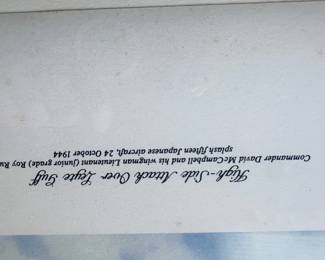 High-Side Attack Over Leyte Gulf
Commander David McCampbell and his wingman Lieutenant (junior grade) Roy Ru
splash fifteen Japanese aircraft, 24 October 1944